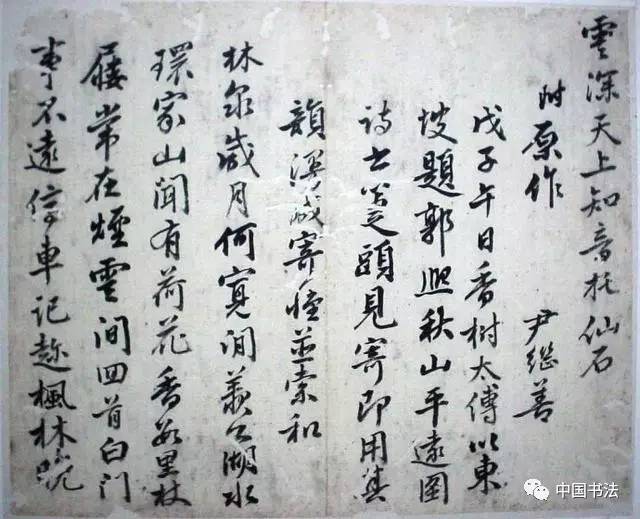 雲深天上知音托仙石
附原作 尹繼善
戊子午日香樹太傅以東
坡題郭熙秋山平遠圖
詩書頭見寄即用其
韻漫成寄懷並索和
林泉歲月何寬閒羨公湖水
環家山聞有荷花香數里杖
屨常在煙雲間回首白門
事不遠停車記趁楓林晚
中国书法